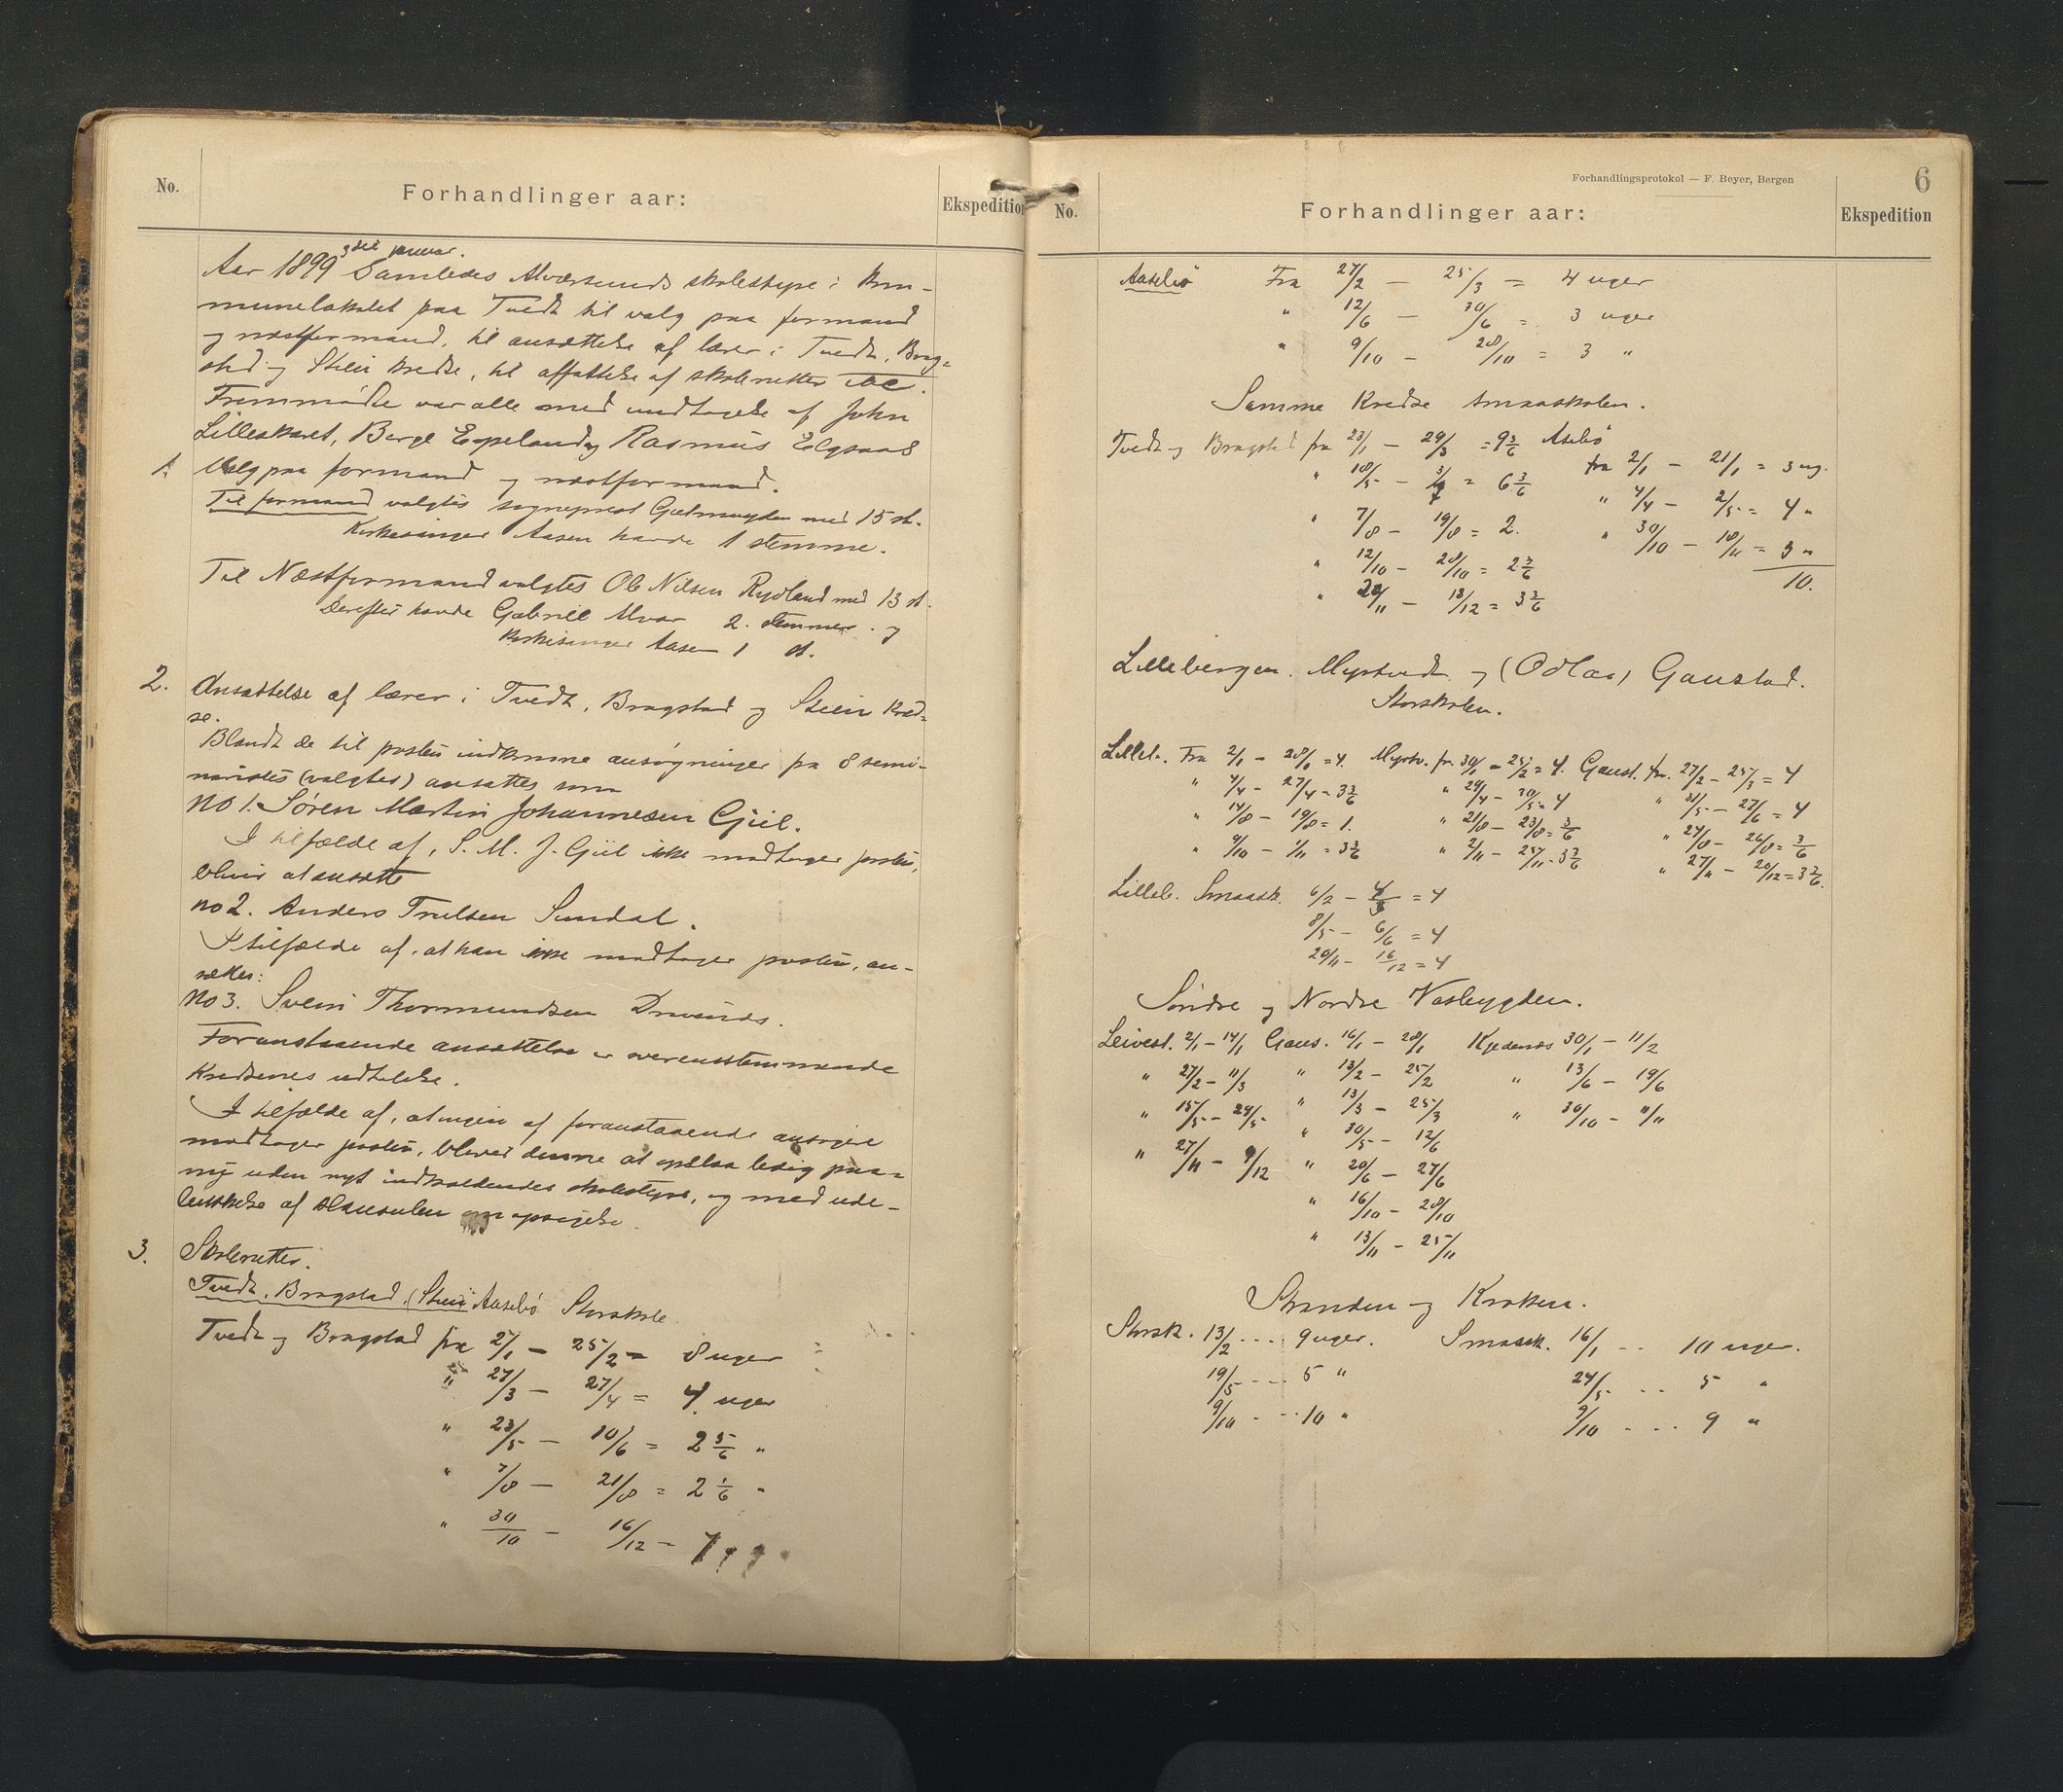 No.
Forhandlinger aar:
Ekspedition
Aar 1899 3die januar. Samledes Alversunds skolestyre i kom-
munelokalet paa Tvedt til valg paa formand
og næstformand, til ansættelse af lærer i Tvedt, Brag=
stad og Stien kredse, til affattelse af skoleruter etc.
Fremmødte var alle med undtagelse af John
Lilleskaret, Berge Espeland og Rasmus Elgsaas
1. Valg paa formand og næstformand.
Til formand valgtes sogneprest Gjelmuyden med 15 st.
Kirkesanger Aasen havde 1 stemme.
Til Næstformand valgtes Ole Nilsen Rydland med 13 st.
Derefter havde Gabriel Alvær 2. stemmer og
Kirkesanger Aasen 1 st.
2. Ansættelse af lærer i Tvedt, Bragstad og Stien kred=
se.
Blandt de til posten indkomne ansøgninger fra 8 semi-
narister (valgtes) ansattes som
No 1. Søren Martin Johannesen Gjil.
I tilfælde af, S. M. J. Gjil ikke modtager posten,
bliver at ansætte
no 2. Anders Trulsen Sundal.
I tilfælde af, at han ikke modtager posten, an-
sættes:
No 3. Svein Thormundsen
Foranstaaende ansættelse er overensstemmende
Kredsenes udtalelse.
I tilfælde af, at ingen af foranstaaende ansøgere
modtager posten, bliver denne at opslaa ledig paa=
ny uden nyt indkaldendes skolestyre, og med ude-
lukkelse af klausulen om opsigelse.
3. Skoleruter.
Tvedt, Bragstad, (Stien) Aasebø Storskole
Tvedt og Bragstad fra 2/1 – 25/2 = 8 uger
" 27/3 – 27/4 = 4 uger
" 23/5 – 10/6 = 2 5/6 "
" 7/8 – 21/8 = 2 1/6 "
" 30/10 – 16/12 – 7
Forhandlingsprotokol — F. Beyer, Bergen
6
No.
Forhandlinger aar:
Ekspedition
Aasebø Fra 27/2 – 25/3 = 4 uger
" 12/6 – 30/6 = 3 uger
" 9/10 – 28/10 = 3 "
Samme Kredse Smaaskolen.
Tvedt og Bragstad fra 23/1 – 29/3 = 9 3/6 Asebø
fra 2/1 – 21/1 = 3 ug.
" 18/5 – = 6 3/6 " 4/4 – 2/5 = 4 "
" 7/8 – 19/8 = 2. " 30/10 – 18/11 = 3 "
" 12/10 – 28/10 = 2 3/6 10.
" 20/11 – 13/12 = 3 3/6
Lillebergen. Myrtvedt og (Odlaa) Gaustad.
Storskolen.
Lilleb. Fra 2/1 – 28/1 = 4. Myrtv. fr. 30/1 – 25/2 = 4. Gaust. fra. 27/2 – 25/3 = 4
" 4/4 – 27/4 = 3 3/6 " 29/4 – 30/5 = 4 " 31/5 – 27/6 = 4
" 14/8 – 19/8 = 1. " 21/8 – 23/8 = 3/6 " 24/8 – 26/8 = 3/6
" 9/10 – 1/11 = 3 3/6 " 2/11 – 25/11 = 3 3/6 " 27/11 – 20/12 = 3 3/6.
Lilleb. Smaask. 6/2 – 4/3 = 4
8/5 – 6/6 = 4
20/11 – 16/12 = 4
Søndre og Nordre Vasbygden.
Leivest. 2/1 – 14/1 Gaus. 16/1 – 28/1 Kjedenæs 30/1 – 11/2
" 27/2 – 11/3 " 13/2 – 25/2 " 13/6 – 19/6
" 15/5 – 29/5 " 13/3 – 25/3 " 30/10 – 11/11
" 27/11 – 9/12 " 30/5 – 12/6
" 20/6 – 27/6
" 16/10 – 28/10
" 13/11 – 25/11
Stranden og Kroken.
Storsk. 13/2 .... 9 uger. Smaask. 16/1 .. 10 uger.
19/5 .... 5 " 24/5 ... 5 "
9/10 ... 10 " 9/10 .... 9 "